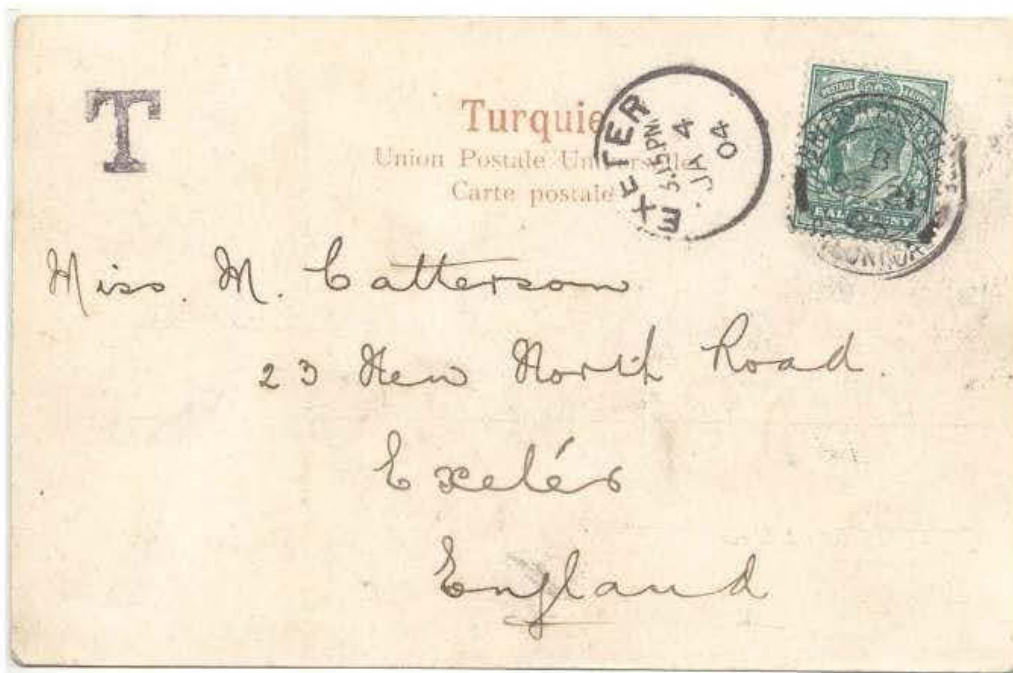 T
Turquie
Union Postale Universelle
Carte postale
EXETER
5.15 PM
JA 4
04
POSTAGE
HALFPENNY
Miss. M. Catterson
23 New North Road.
Exeter
England